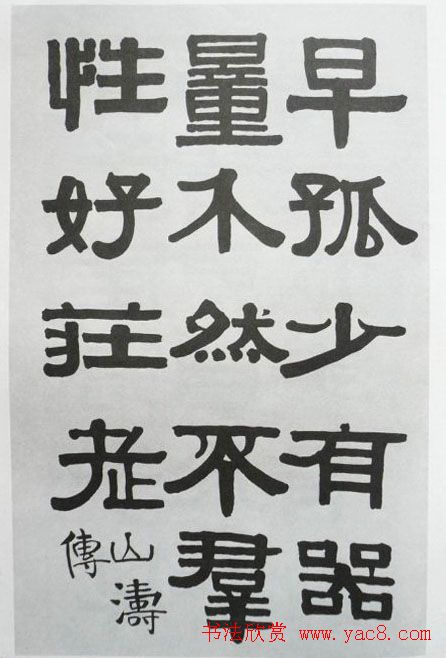 早孤少有器
量介然不羣
性好莊老
山濤
傳
书法欣赏 www.yac8.com